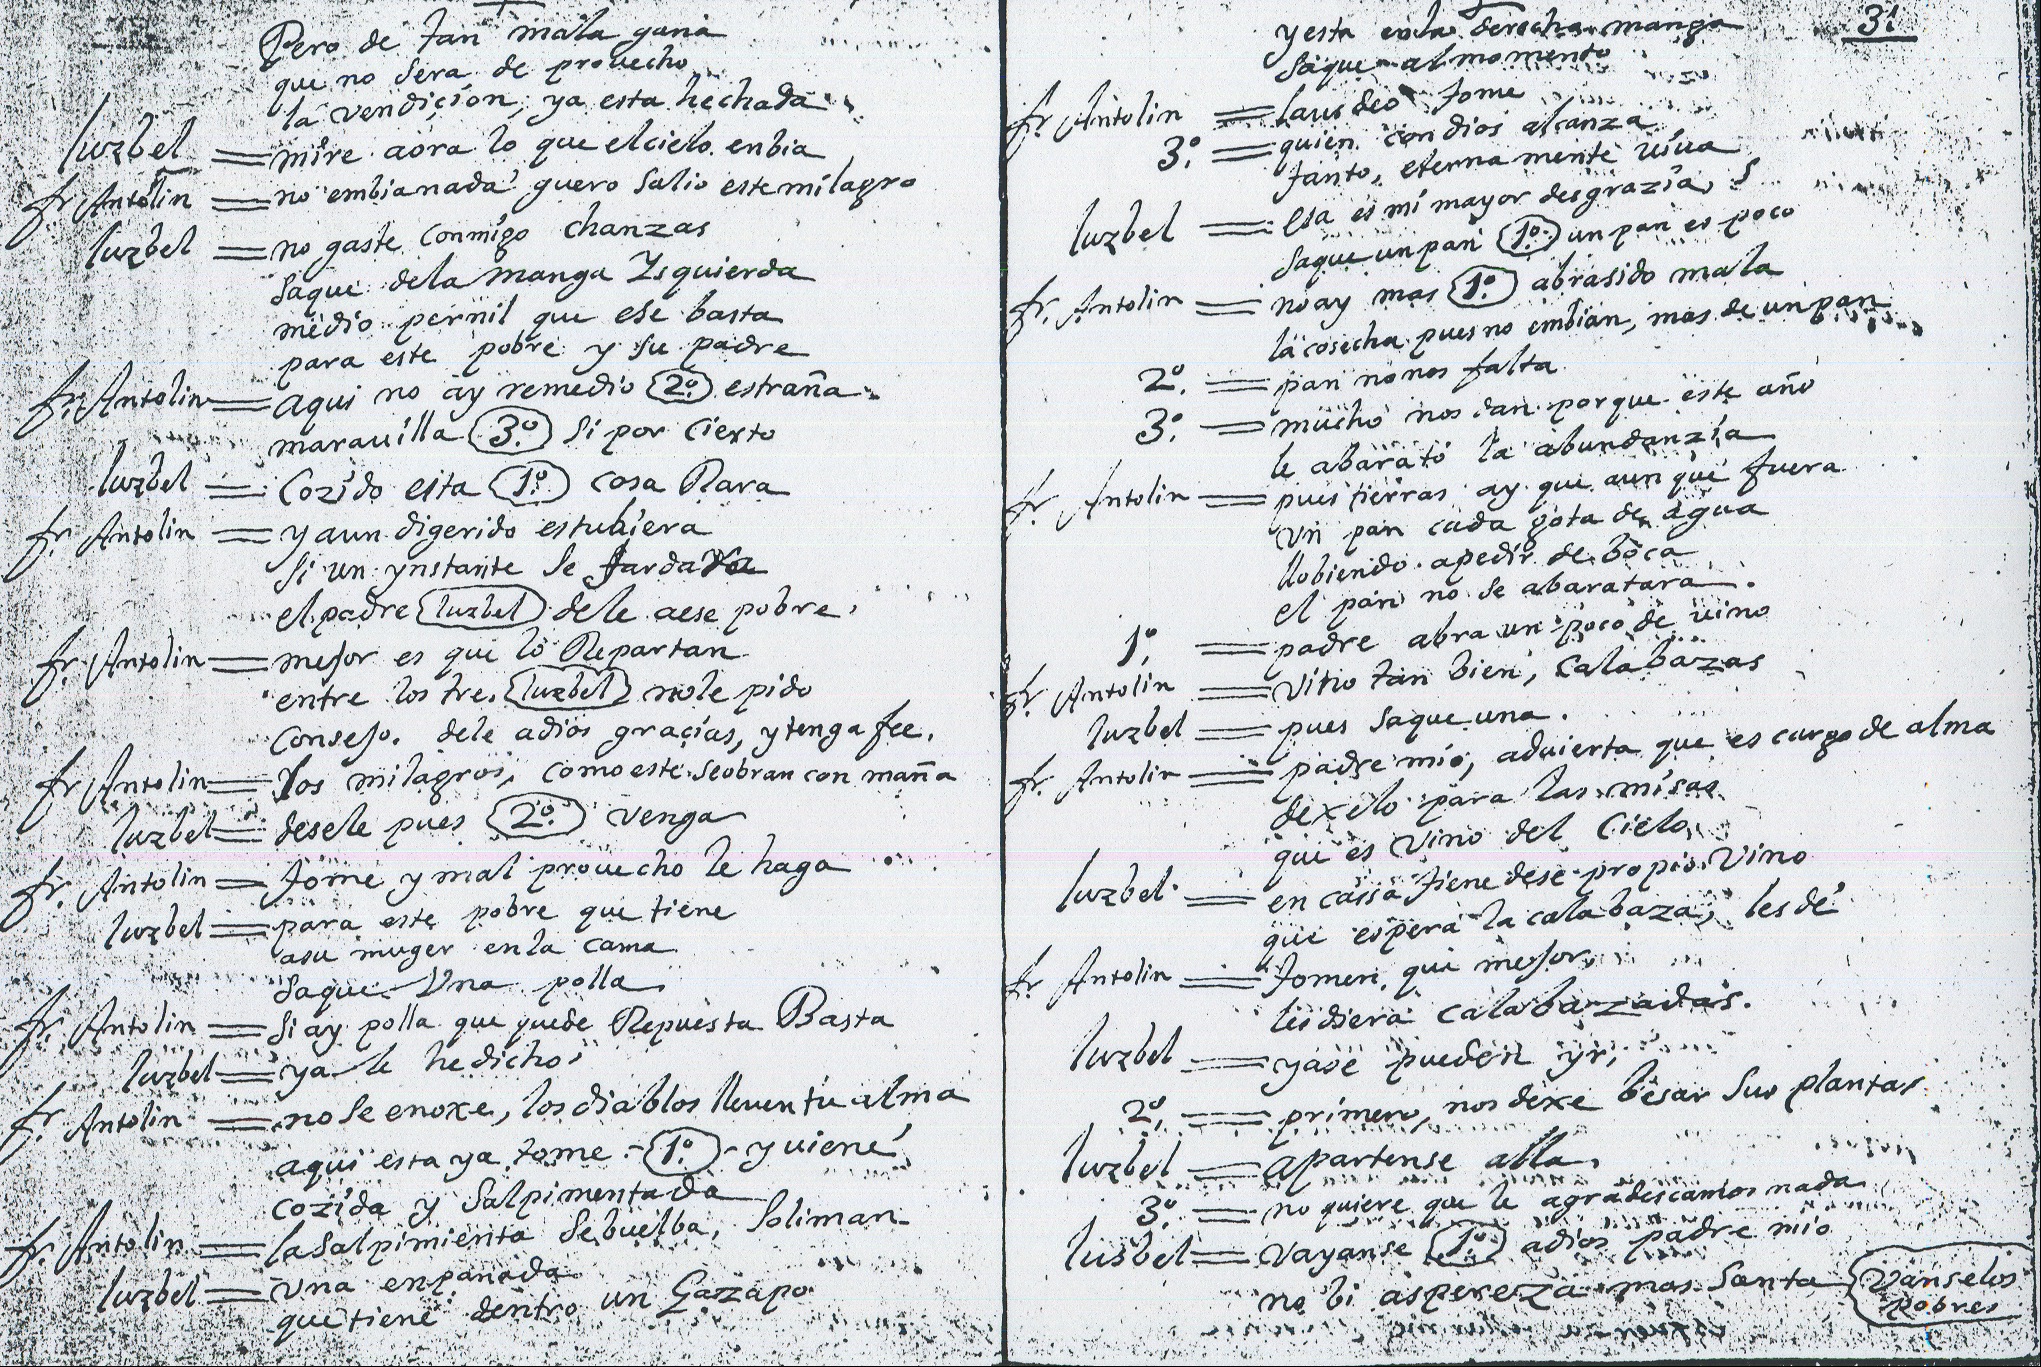 Pero de tan mala gana
que no sera de prouecho
la vendiçion, ya esta hechada
luzbel = mire aora lo que el cielo enbia
fr Antolin = no embia nada guero salio este milagro
luzbel = no gaste conmigo chanzas
saque dela manga Ysquierda
medio pernil que ese basta
para este pobre y su padre
fr. Antolin = aqui no ay remedio 2º. estraña
marauilla 3º. si por cierto
luzbel = Cozido esta 1º. cosa Rara
fr Antolin = y aun digerido estubiera
si un ynstante se tardara
el padre luzbel dele aese pobre
fr. Antolin = mejor es que lo Repartan
entre los tres luzbel no le pido
Consejo. dele adios graçias, y tenga fee.
fr Antolin = los milagros, como este se obran con maña
luzbel = desele pues 2º. venga
fr. Antolin = tome y mal prouecho le haga
luzbel = para este pobre que tiene
asu muger en la cama
saque Una polla
fr. Antolin = si ay polla que quede Repuesta Basta
luzbel = ya le he dicho
fr. Antolin = no se enoxe, los diablos lleuen tu alma
aqui esta ya tome - 1º. - y uiene
cozida y salpimentada
fr. Antolin = la salpimienta se buelba, soliman
luzbel = Una enpanada
que tiene dentro un Gazzapo
3!
y esta en la derecha manga
saque al momento
fr Antolin = laus deo tome
3º. = quien con dios alcanza
tanto, eterna mente uiua
luzbel = esa es mi mayor desgrazia
saque un pan 1º. un pan es poco
fr. Antolin = no ay mas 1º. abrasido mala
la cosecha pues no embian, mas de un pan
2º. = pan no nos falta
3º. = mucho nos dan porque este año
le abarato la abundanzia
fr. Antolin = pues tierras ay que aun que fuera
Un pan cada gota de agua
llobiendo a pedir de boca
el pan no se abaratara.
1º. = padre abra un poco de uino
fr Antolin = Vino tan bien, calabazas
luzbel = pues saque una.
fr. Antolin = padre mio, aduierta que es cargo de alma
dexelo para las misas
que es Vino del Cielo
luzbel = en cassa tiene dese propio Vino
que espera la calabaza, les dé
fr Antolin = tomen, que mejor
les diera calabazadas.
luzbel = ya se pueden yr,
2º. = primero, nos dexe besar sus plantas
luzbel = apartense alla
3º. = no quiere que le agradescamos nada
lusbel = vayanse 1º. adios padre mio
no bi aspereza mas santa Vanse los
pobres